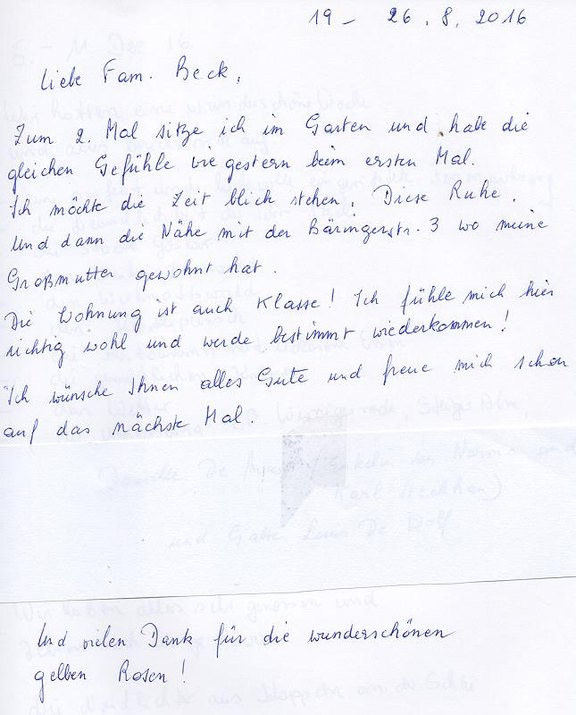 19 - 26.8.2016
Liebe Fam. Beck,
Zum 2. Mal sitze ich im Garten und habe die
gleichen Gefühle wie gestern beim ersten Mal.
Ich möchte die Zeit blieb stehen. Diese Ruhe.
Und dann die Nähe mit der Bäringerstr. 3 wo meine
Großmutter gewohnt hat.
Die Wohnung ist auch Klasse! Ich fühle mich hier
richtig wohl und werde bestimmt wiederkommen!
Ich wünsche Ihnen alles Gute und freue mich schon
auf das nächste Mal.
Und vielen Dank für die wunderschönen
gelben Rosen!